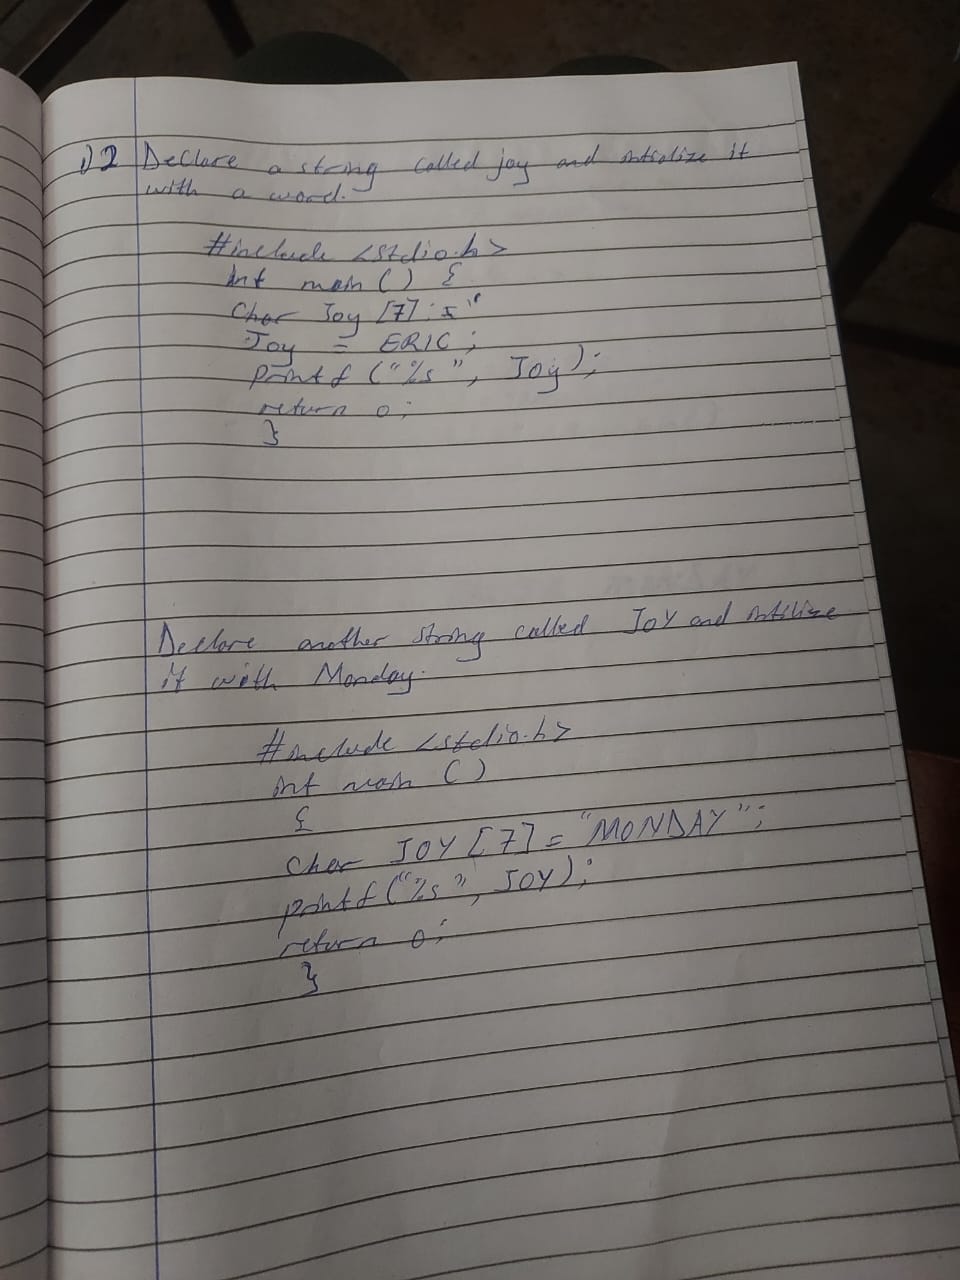 1) 2 Declare a string called joy and intialize it
with a word.
#include <stdio.h>
int main () {
Char Joy [7];
Joy = ERIC;
printf ("%s", Joy);
return 0;
}
Declare another string called JOY and intilize
it with Monday.
#include <stdio.h>
int main ()
{
Char JOY [7] = "MONDAY";
printf ("%s", JOY);
return 0;
}